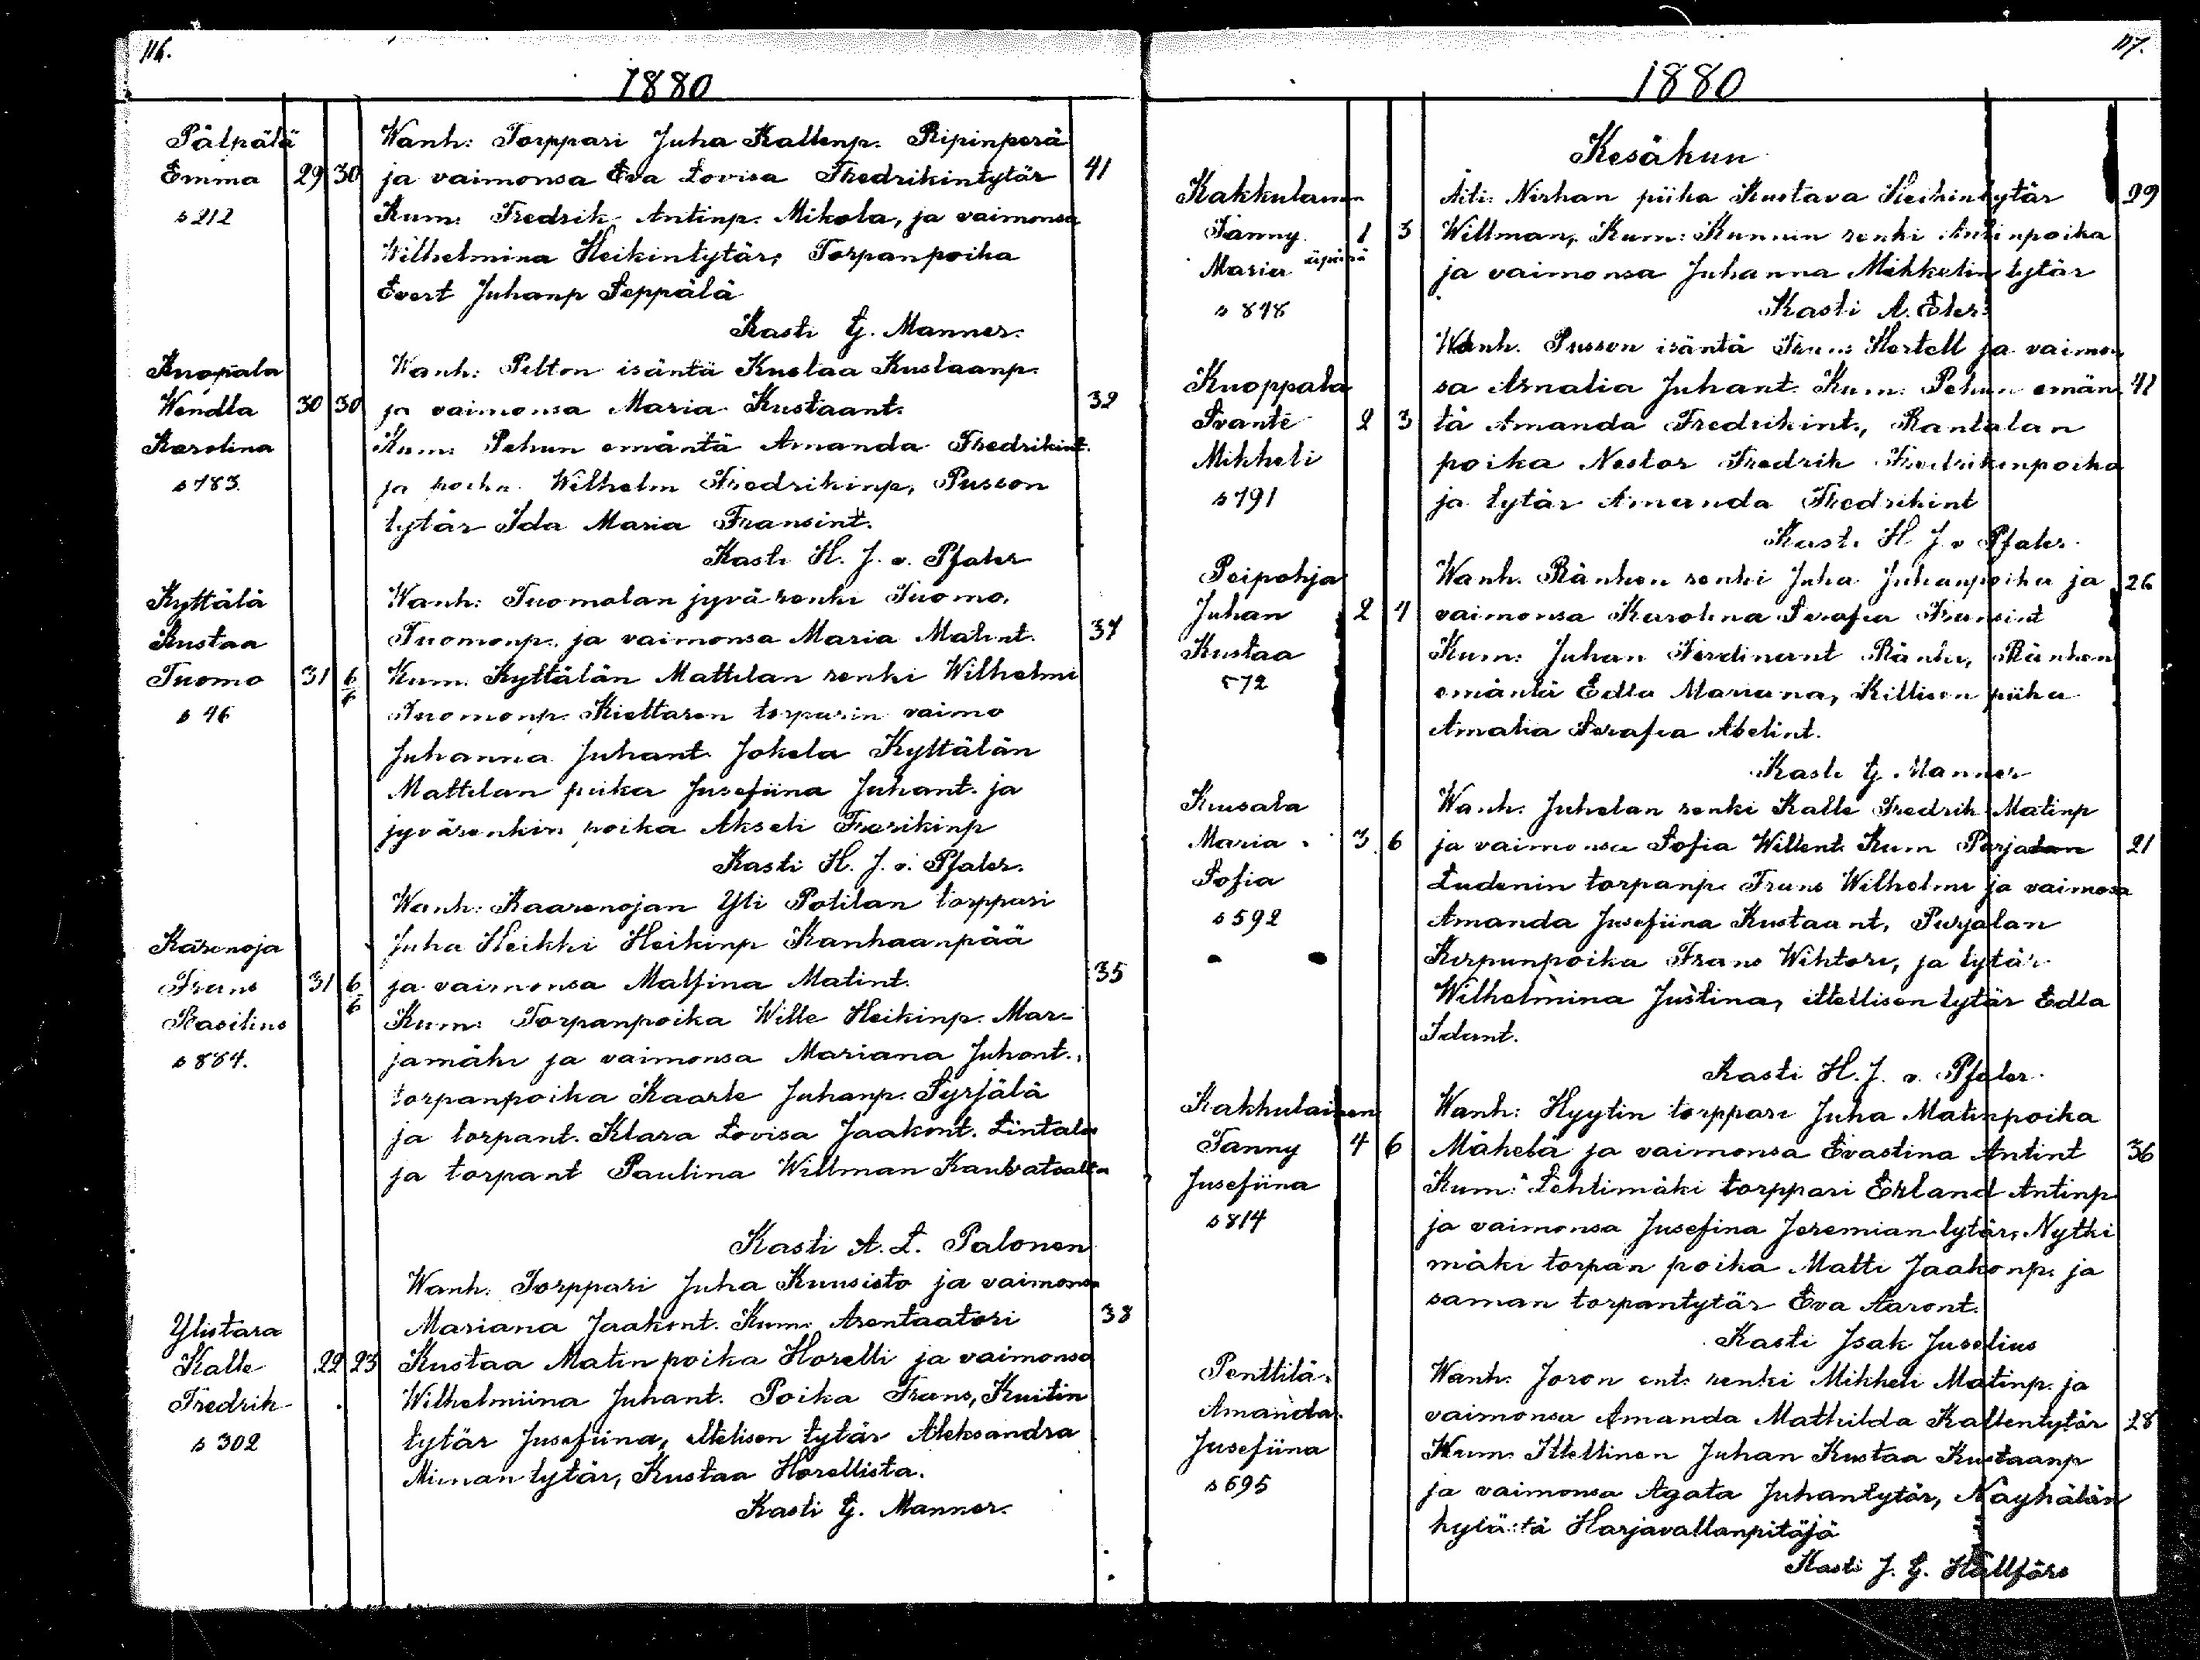 116.
1880
Pälpälä
Emma 29 30
s 212
Wanh: Torppari Juha Kallenp. Ripinperä
ja vaimonsa Eva Lovisa Fredrikintytär 41
Kum: Fredrik Antinp. Mikola, ja vaimonsa
Wilhelmina Heikintytär, Torpanpoika
Evert Juhanp Seppälä
Kasti G. Manner.
Knopala
Wendla 30 30
Karolina
s 183.
Wanh: Pelton isäntä Kustaa Kustaanp.
ja vaimonsa Maria Kustaant. 32
Kum: Pehun emäntä Amanda Fredrikint.
ja poika Wilhelm Fredrikinp, Pusson
tytär Ida Maria Fransint.
Kasti H. J. v. Pfaler
Kyttälä
Kustaa
Tuomo 31 6/6
s 46
Wanh: Tuomolan jyvä renki Tuomo,
Tuomonp. ja vaimonsa Maria Matint. 37
Kum. Kyttälän Mattilan renki Wilhelmi
Tuomonp. Kiettaren torparin vaimo
Juhanna Juhant. Jokela Kyttälän
Mattilan piika Jusefiina Juhant. ja
jyvärenkin poika Akseli Frerikinp
Kasti H. J. v. Pfaler.
Kärenoja
Frans 31 6/6
Basilius
s 864.
Wanh: Kaarenojan Yli Potilan torppari
Juha Heikki Heikinp Kanhaanpää
ja vaimonsa Malfina Matint. 35
Kum: Torpanpoika Wille Heikinp. Mar-
jamäki ja vaimonsa Mariana Juhant.,
torpanpoika Kaarle Juhanp. Syrjälä
ja torpant. Klara Lovisa Jaakont. Lintala
ja torpant Paulina Willman Kauvatsalta
Kasti A. L. Palonen
Ylistara
Kalle 22 23
Fredrik
s 302
Wanh: Torppari Juha Kuusisto ja vaimonsa
Mariana Jaakont. Kum: Arentaatori 38
Kustaa Matinpoika Horelli ja vaimonsa
Wilhelmiina Juhant. Poika Frans, Kuitin
tytär Jusefiina, ittelisen tytär Aleksandra
Miinan tytär, Kustaa Horellista.
Kasti G. Manner.
117.
1880
Kesäkun
Kakkulainen
Fanny 1 3
Maria äpärä
s 848
Äiti: Nirhan piika Kustava Heikintytär 29
Willman, Kum: Kunnin renki Antinpoika
ja vaimonsa Juhanna Mikkelin tytär
Kasti A. Eler.
Knoppala
Svante 2 3
Mikheli
s 191
Wanh. Pusson isäntä Frans Hertell ja vaimon
sa Amalia Juhant. Kum: Pehun emän 42
tä Amanda Fredrikint., Rantalan
poika Nestor Fredrik Fredrikinpoika
ja tytär Amanda Fredrikint
Kasti H. J. v Pfaler.
Peipohja
Juhan 2 4
Kustaa
s 72
Wanh. Ränken renki Juha Juhanpoika ja 26
vaimonsa Karolina Serafia Fransint
Kum: Juhan Ferdinant Ränki, Ränken
emäntä Edla Mariana, Killisen piika
Amalia Serafia Abelint.
Kasti G. Manner
Kuusala
Maria 3 6
Sofia
s 592
Wanh. Juhelan renki Kalle Fredrik Matinp
ja vaimonsa Sofia Willent. Kum Parjalan 21
Ludenin torpanp. Frans Wilhelmi ja vaimonsa
Amanda Jusefiina Kustaant, Purjalan
Kerpunpoika Frans Wihtori, ja tytär
Wilhelmina Justina, ittellisen tytär Edla
Idant.
Kasti H. J. v. Pfaler.
Kakkulainen
Fanny 4 6
Jusefiina
s 814
Wanh: Hyytin torppari Juha Matinpoika
Mäkelä ja vaimonsa Evastina Antint 36
Kum: Lehtimäki torppari Erland Antinp
ja vaimonsa Jusefina Jeremian tytär, Nytki
mäki torpan poika Matti Jaakonp. ja
saman torpantytär Eva Aaront.
Kasti Isak Juselius
Penttilä
Amanda
Jusefiina
s 695
Wanh: Joron ent. renki Mikheli Matinp. ja
vaimonsa Amanda Mathilda Kallentytär 28
Kum. Ittellinen Juhan Kustaa Kustaanp
ja vaimonsa Agata Juhantytär, Näyhälän
kylästä Harjavallanpitäjä
Kasti J. G. Hällfors